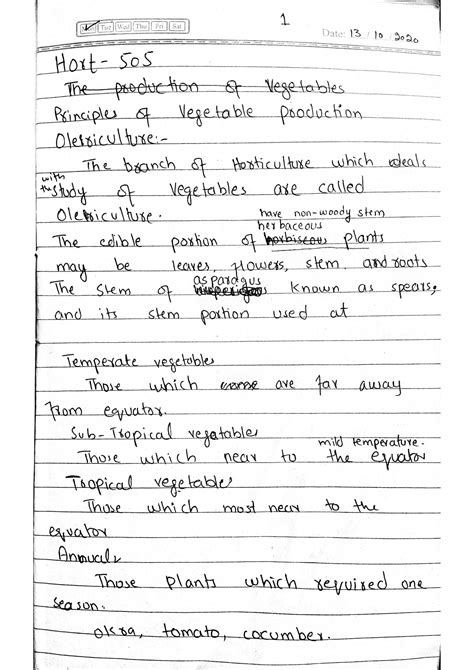 1
Mon Tue Wed Thu Fri Sat
Date: 13 / 10 / 2020
Hort - 505
The production of Vegetables
Principles of Vegetable production
Olericulture:-
The branch of Horticulture which deals
with
the study of vegetables are called
Olericulture.
have non-woody stem
herbaceous
The edible portion of plants
may be leaves, flowers, stem and roots
asparagus
The stem of known as spears,
and its stem portion used at
Temperate vegetables
Those which are far away
from equator.
Sub-Tropical vegetables
mild temperature.
Those which near to the equator
Tropical vegetables
Those which most near to the
equator
Annuals
Those plants which required one
season.
okra, tomato, cocumber.